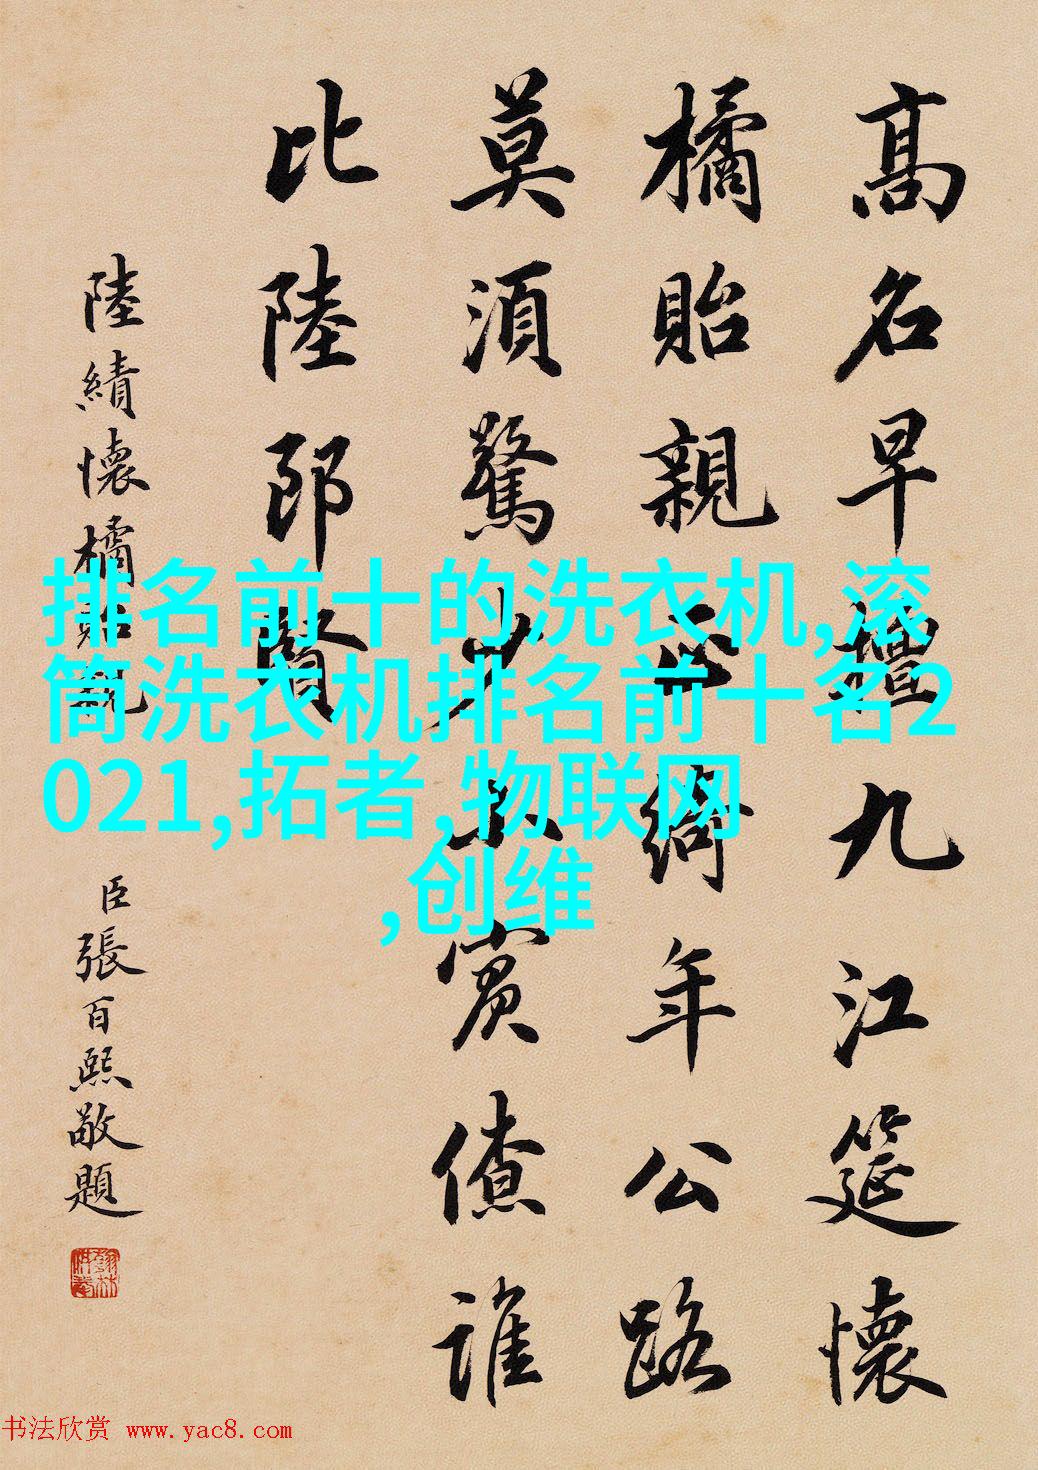 高名早擅九江筵懷
橘貽親正綺年公路
莫須驚少賓僚誰
比陸郎賢
陸績懷橘貽親
臣張百熙敬題
排名前十的洗衣机,滚
筒洗衣机排名前十名2
021,拓者,物联网
,创维
书法欣赏 www.yac8.com